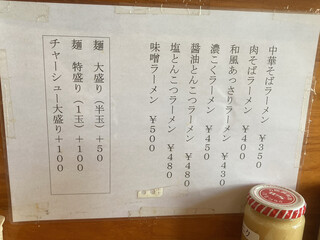 中華そばラーメン ￥350
肉そばラーメン ￥400
和風あっさりラーメン ￥430
濃こくラーメン ￥450
醤油とんこつラーメン ￥480
塩とんこつラーメン ￥480
味噌ラーメン ￥500
麺 大盛り（半玉）＋50
麺 特盛り（1玉）＋100
チャーシュー大盛り＋100